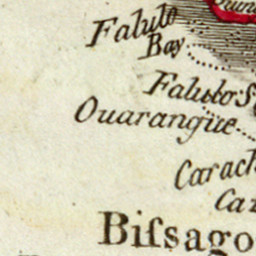 Falulo
Bay
Falulo S
Ouarangue
Carach
Ca
Biſsago